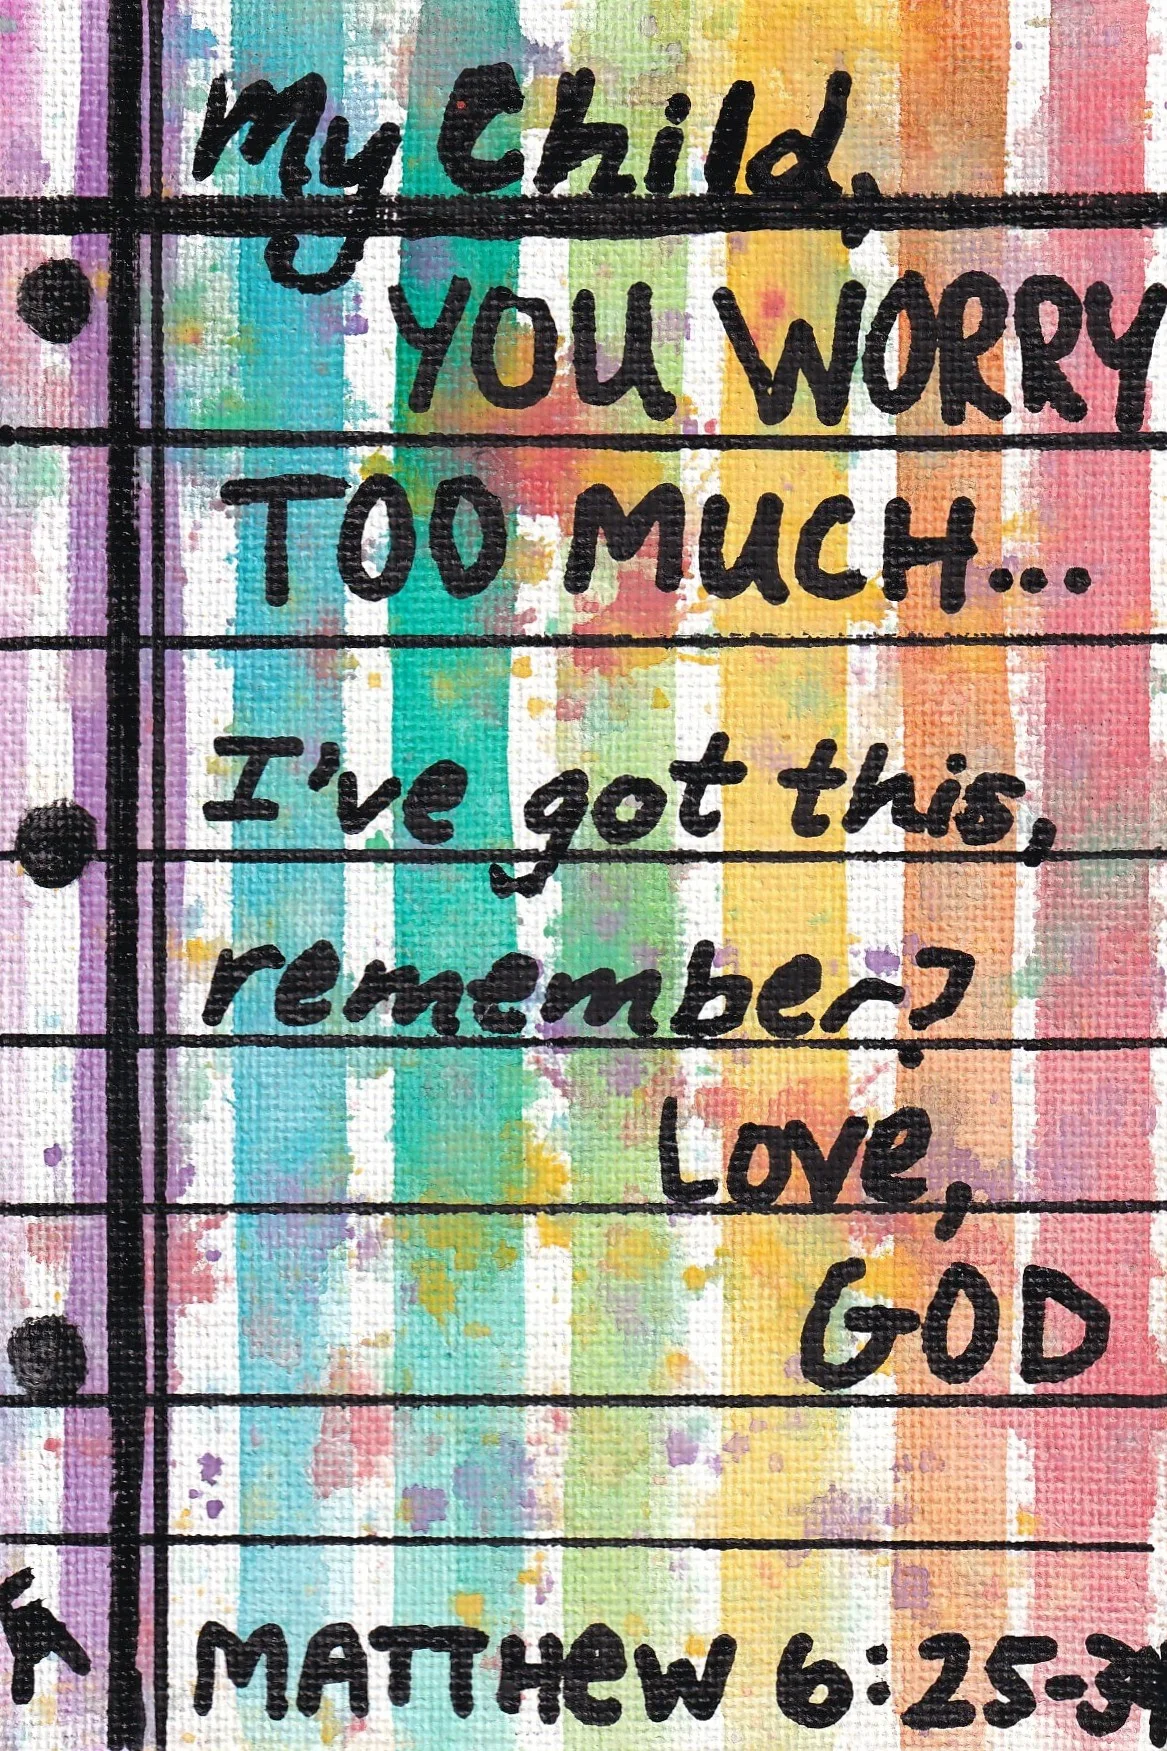 My Child,
YOU WORRY
TOO MUCH...
I've got this,
remember?
Love,
GOD
MATTHEW 6:25-34